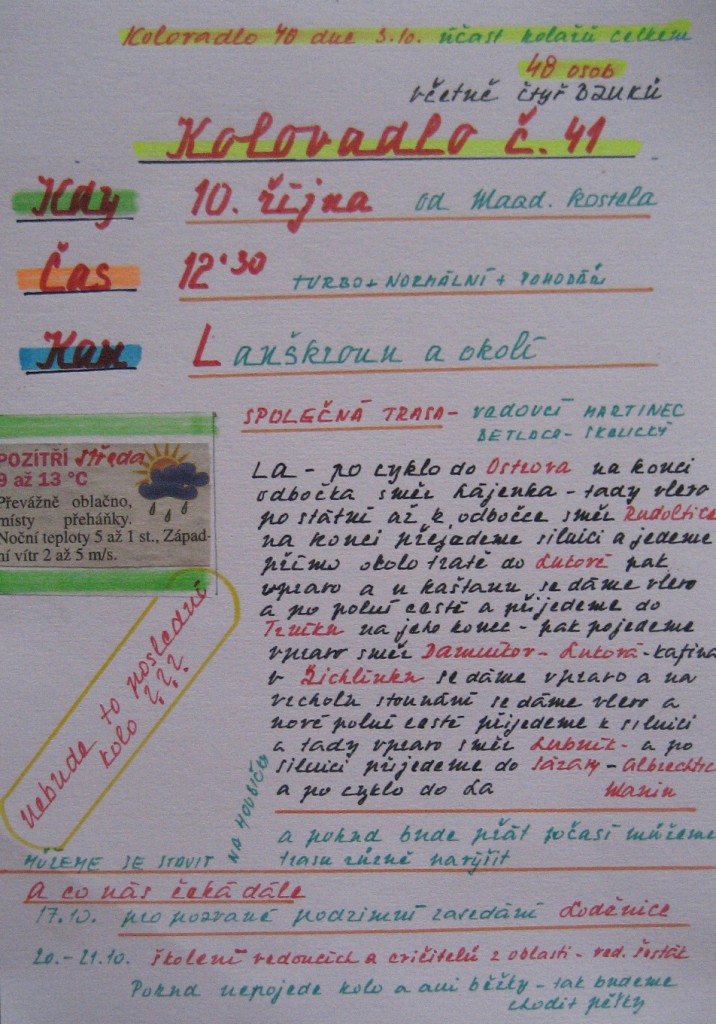 Kolovadlo 40 dne 3.10. účast kolařů celkem
40 osob
včetně čtyř
Kolovadlo č. 41
Kdy 10. října od Maad. kostela
Čas 12˙30 TURBO + NORMÁLNÍ + POHODÁŘ
Kam Lanškroun a okolí
SPOLEČNÁ TRASA - vedoucí MARTINEC
BETLACH - SKALICKÝ
POZÍTŘÍ středa
9 až 13 °C
Převážně oblačno,
místy přeháňky.
Noční teploty 5 až 1 st., Západ-
ní vítr 2 až 5 m/s.
LA - po cyklo do Ostrova na konci
odbočka směr Hájenka - tady vlevo
po státní až k odbočce směr Rudoltice
na konci přejedeme silnici a jedeme
přímo okolo tratě do Lukové pak
vpravo a u kaštanu se dáme vlevo
a po polní cestě a přijedeme do
na jeho konec - pak pojedeme
vpravo směr Damníkov - Luková -
v Žichlínku se dáme vpravo a na
vrcholu stoupání se dáme vlevo a
nové polní cestě přijedeme k silnici
a tady vpravo směr Lubník - a po
silnici přijedeme do Sázavy - Albrechtic
a po cyklo do La Manin
nebude to poslední
kolo ???
a pokud bude přát počasí můžeme
trasu různě navýšit
MŮŽEME SE STAVIT NA HOUBIČKY
A co nás čeká dále
17.10. pro pozvané podzimní zasedání Loděnice
20.-21.10. školení vedoucích a cvičitelů z oblasti - ved. Šesták
Pokud nepojede kolo a ani běžky - tak budeme
chodit pěšky